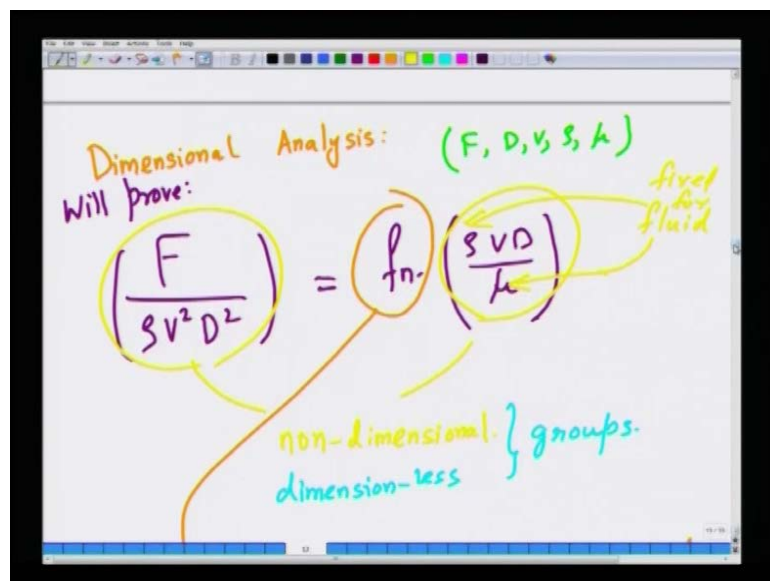 File Edit View Insert Actions Tools Help
Dimensional Analysis: (F, D, V, ρ, μ)
Will prove:
(F / ρV²D²) = fn. (ρVD / μ)
fixed for fluid
non-dimensional. } groups.
dimension-less